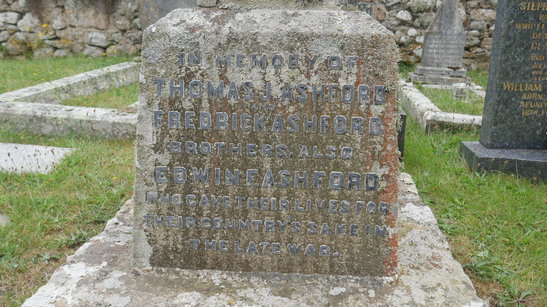 IN MEMORY OF
THOMAS J. ASHFORD
FREDRICK A. ASHFORD
BROTHERS. ALSO
EDWIN F. ASHFORD
WHO GAVE THEIR LIVES FOR
THEIR COUNTRY'S SAKE IN
THE LATE WAR.
STEPH
WHO LI
AND
WILLIAM
BORN